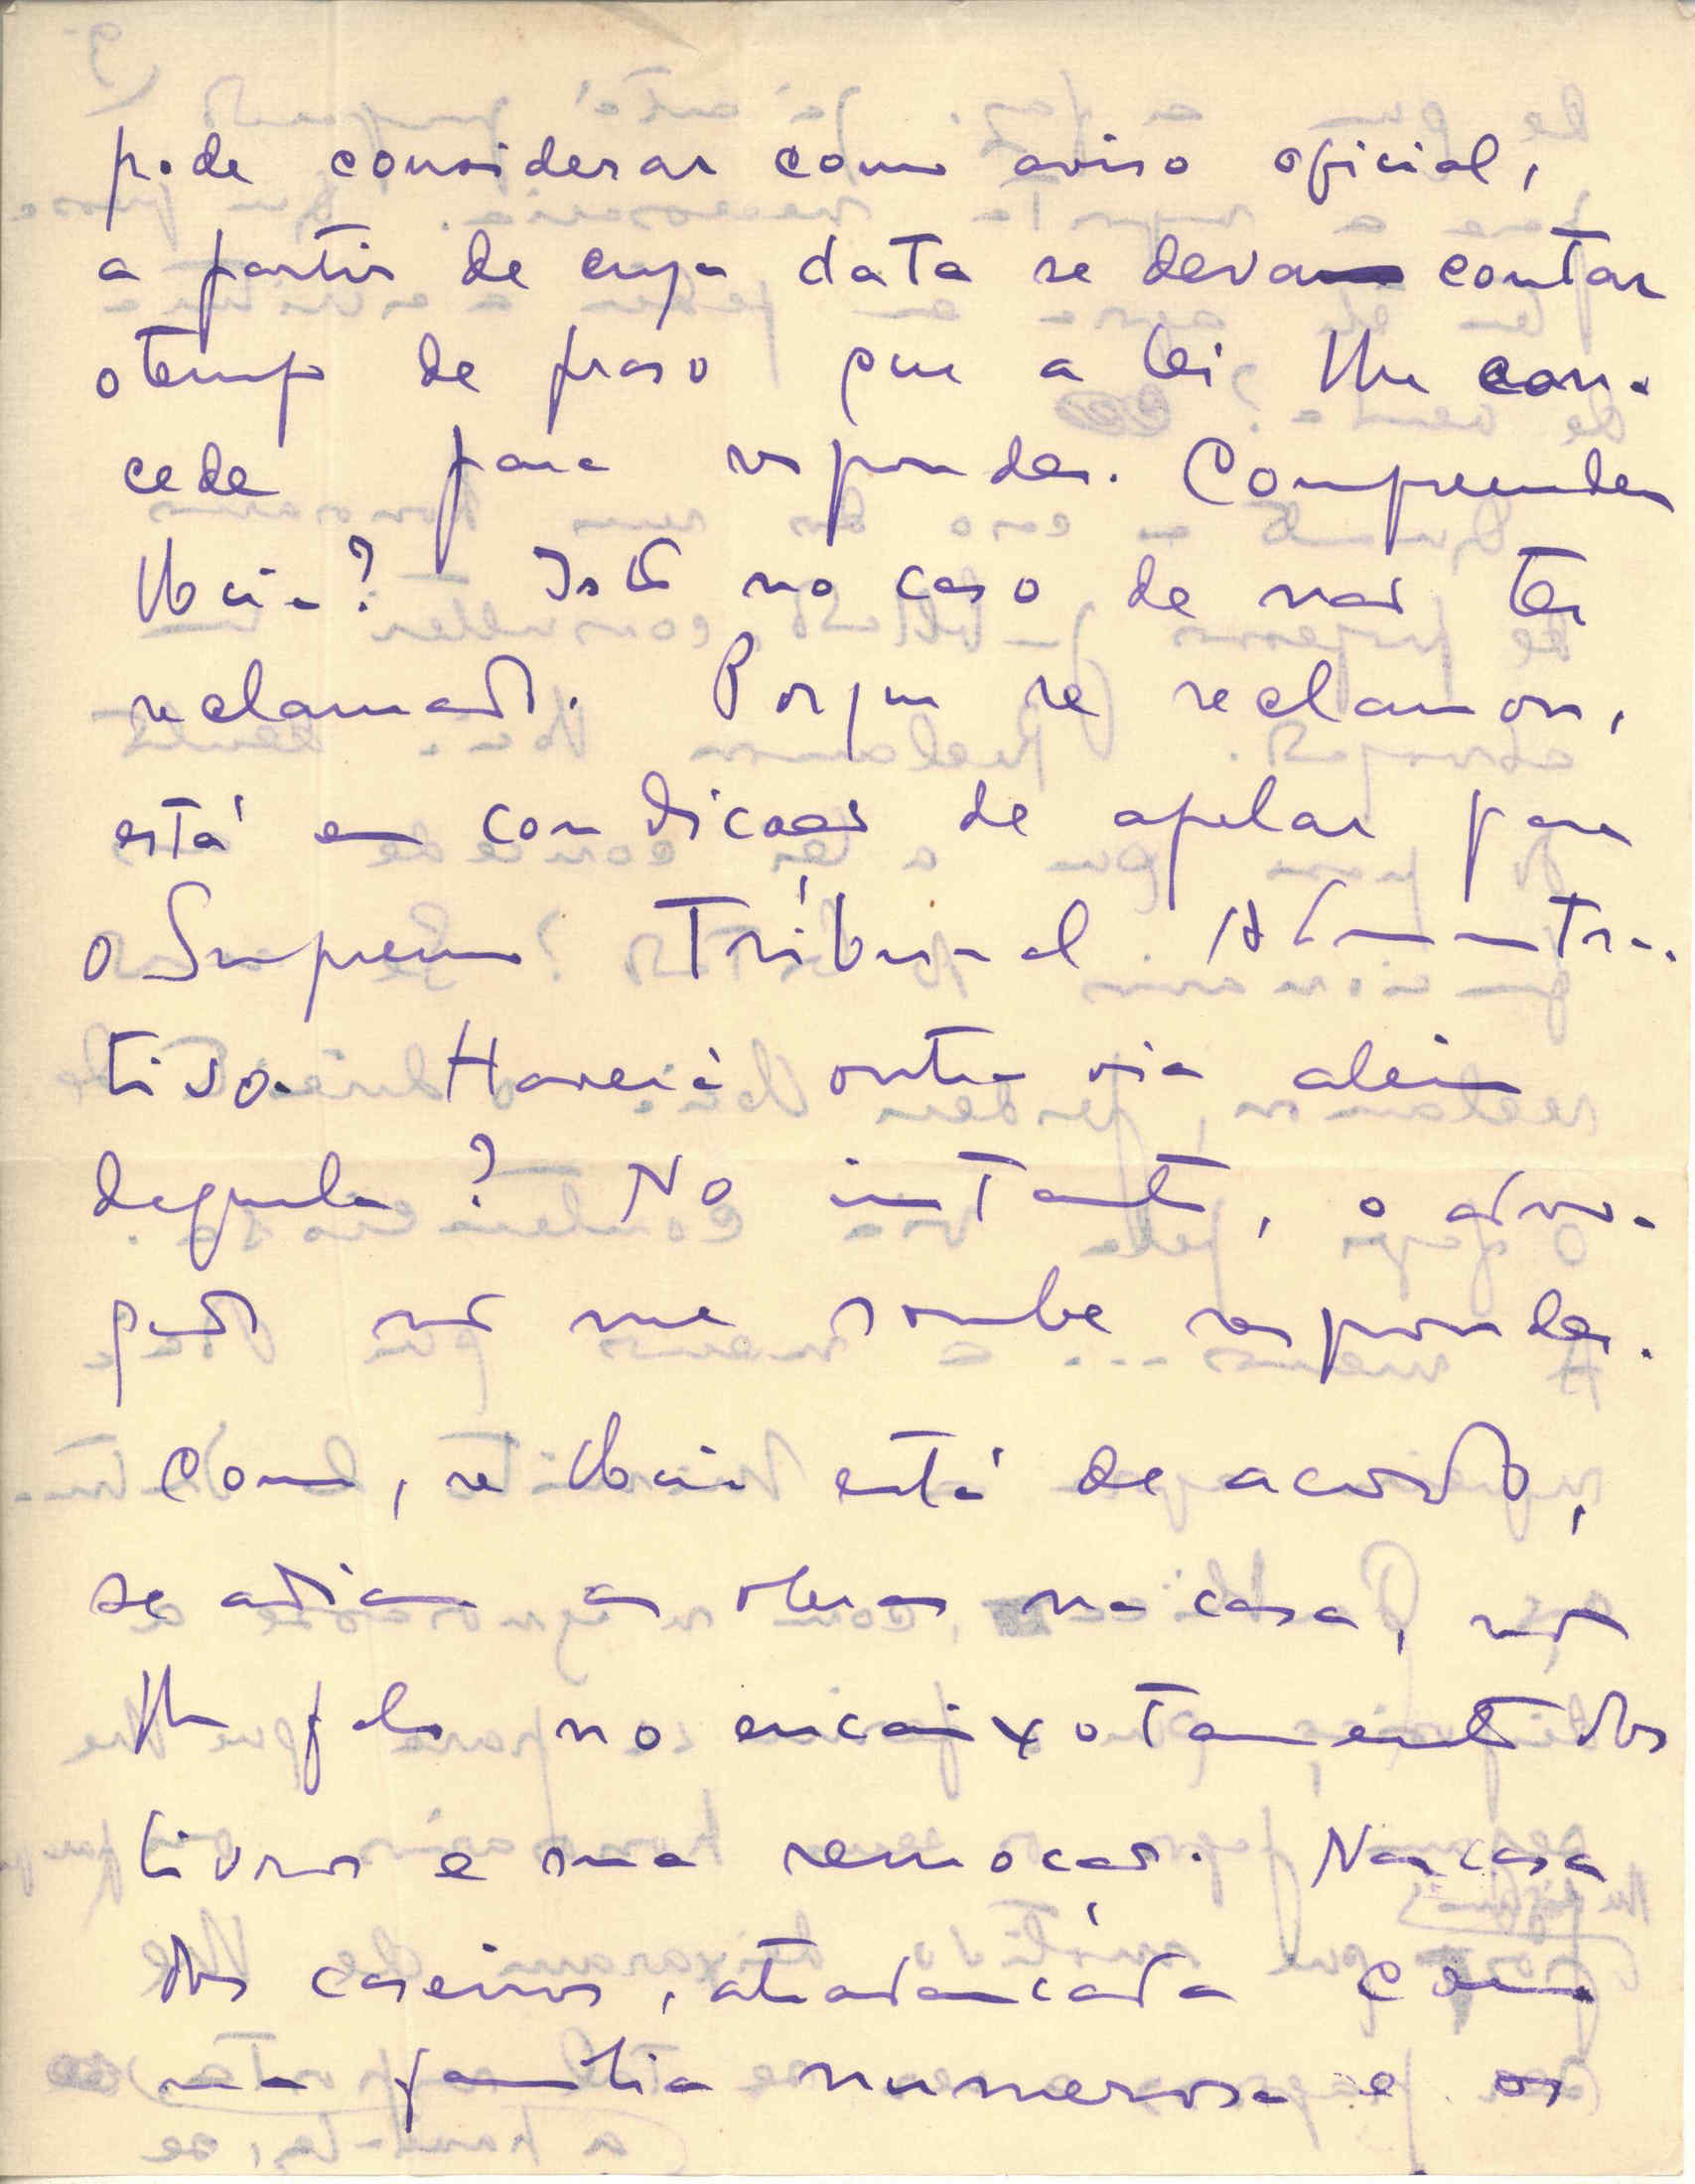 pode considerar como aviso oficial,
a partir de cuja data se deva contar
o tempo de praso que a lei lhe con-
cede para responder. Compreendeu
Você? Isto no caso de não ter
reclamado. Porque se reclamou,
está em condições de apelar para
o Supremo Tribunal Administra-
tivo. Haverá outra via além
daquela? No intanto, o advo-
gado não me soube responder.
Como, se Você está de acordo,
se adiam as obras na casa, não
lhe falo no encaixotamento dos
livros e sua remoção. Na casa
dos caseiros, atravancada com
uma familia numerosa e os